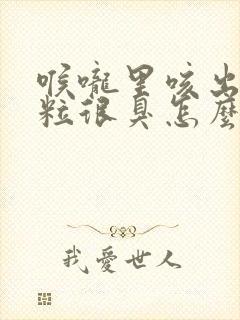 喉嚨里咳出
粒很臭怎麼
我愛世人